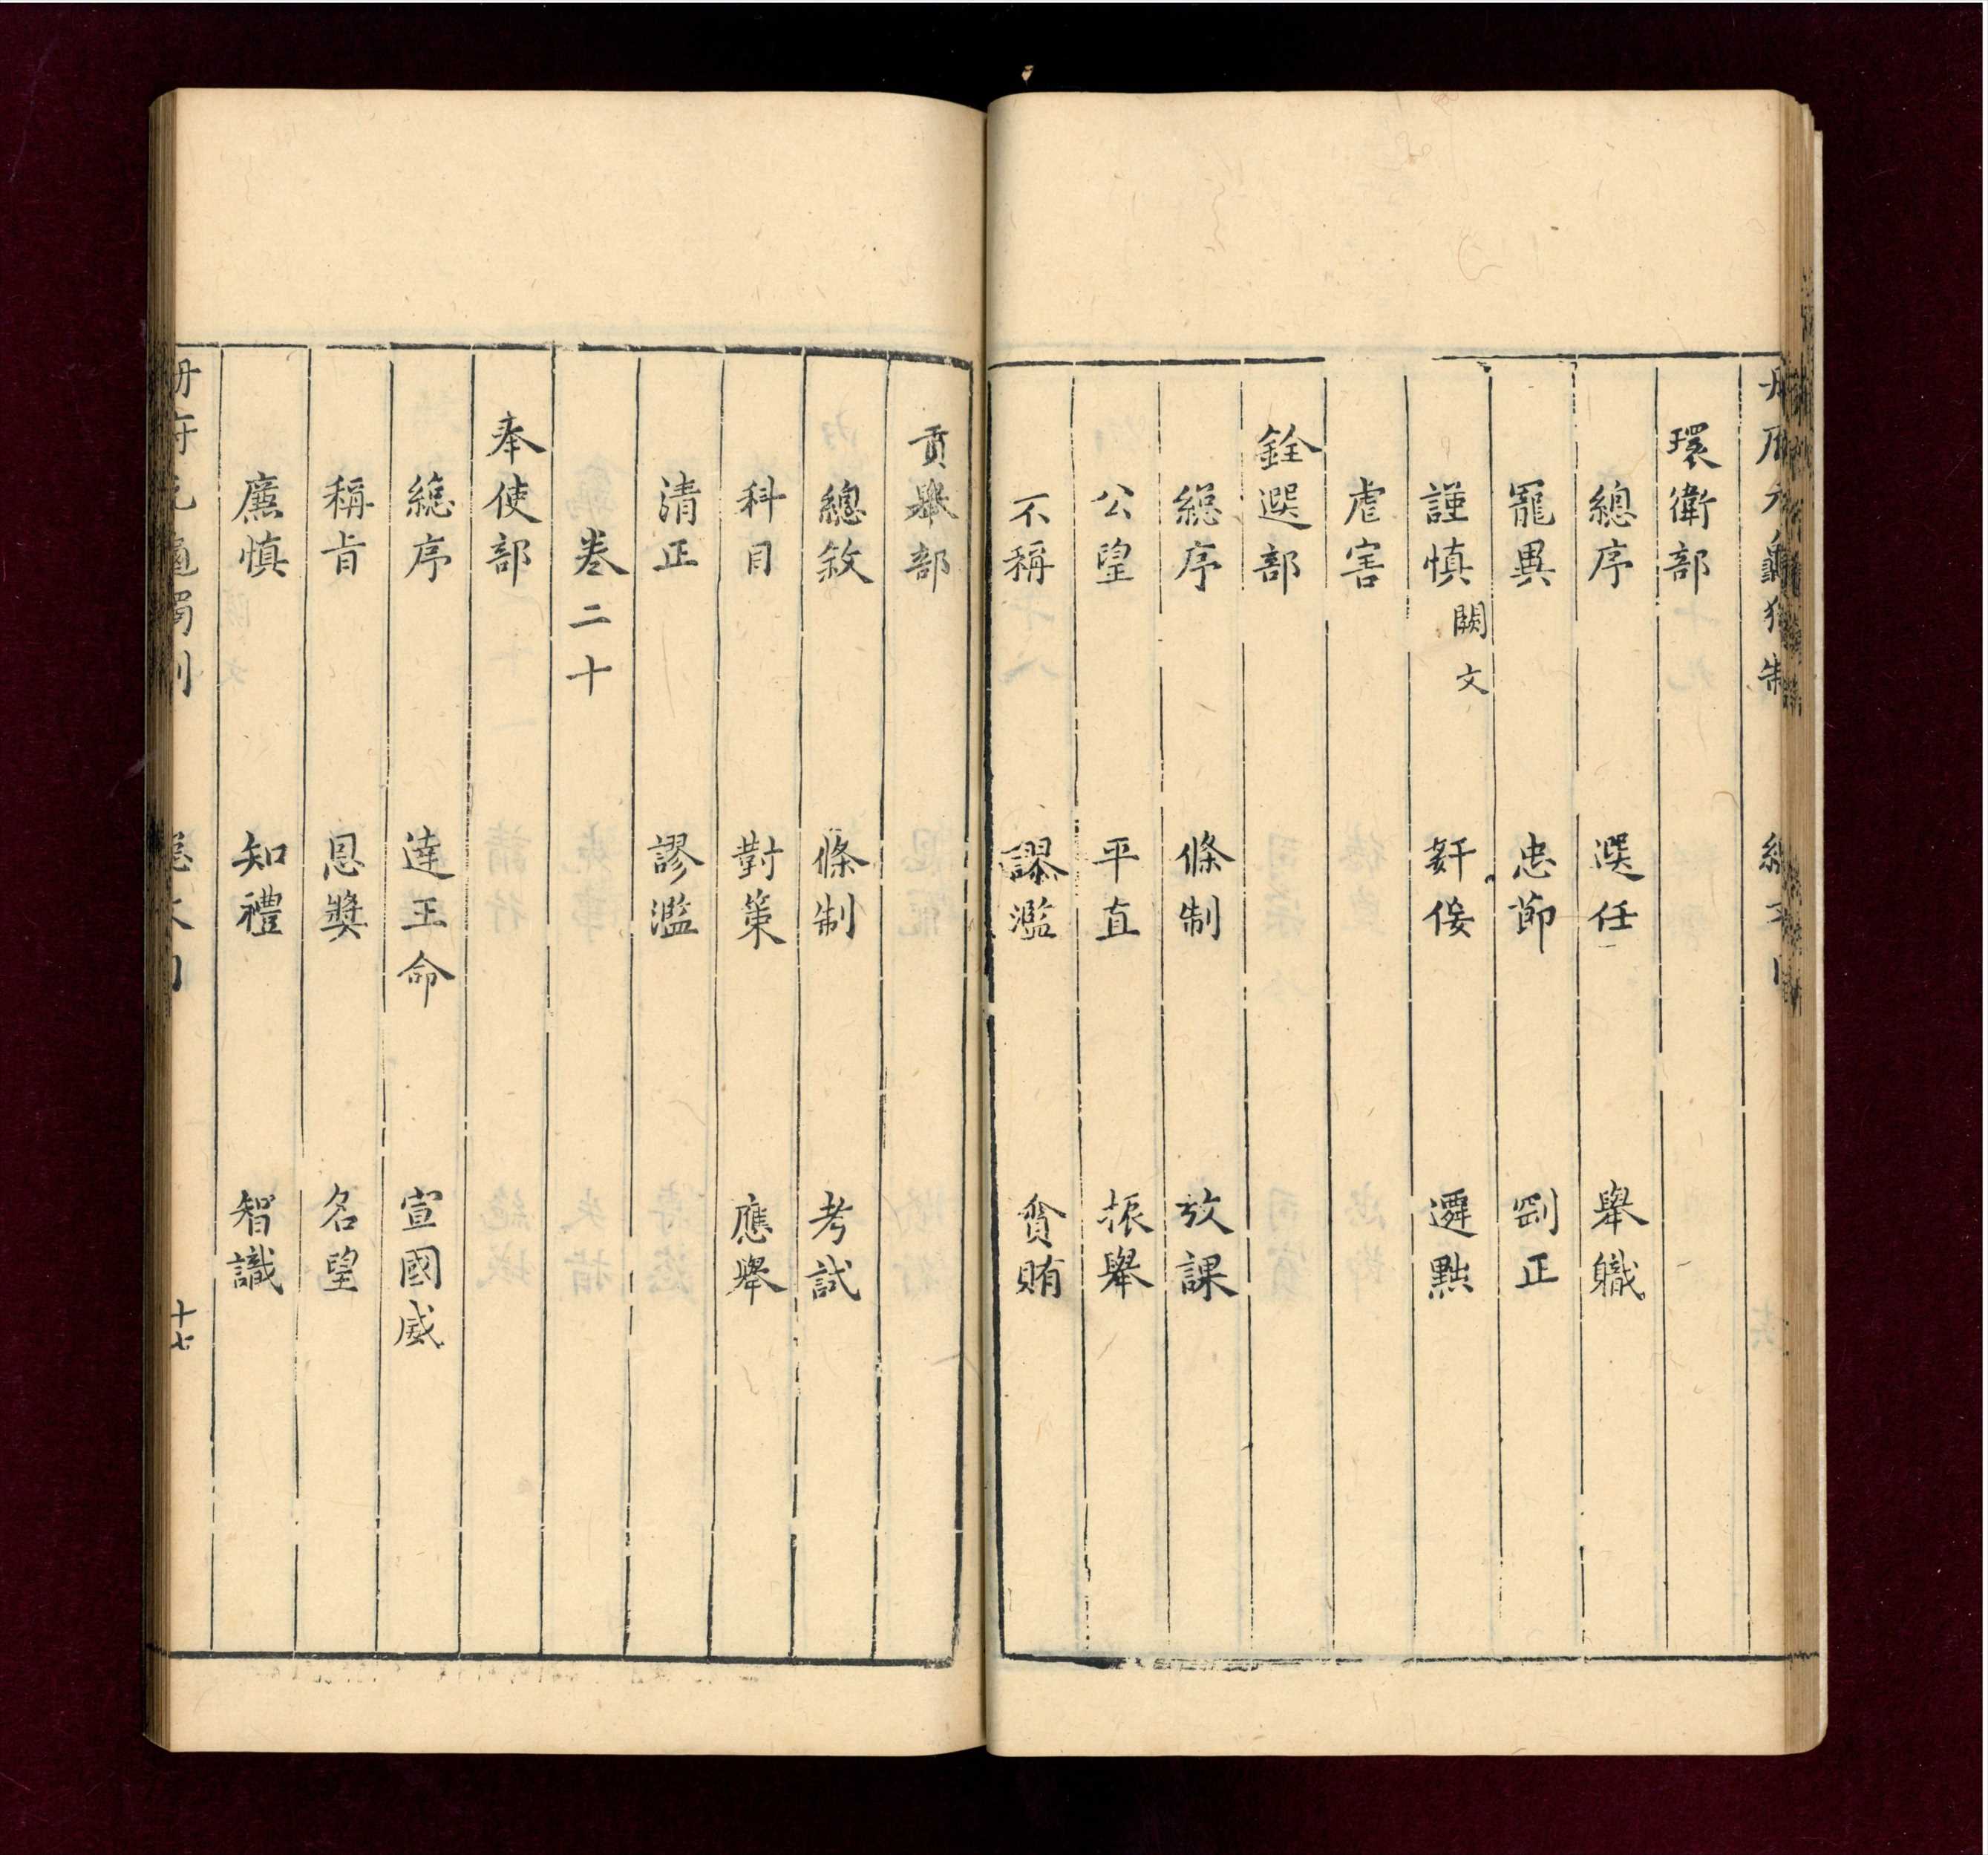 環衛部
總序 選任 舉職
寵異 忠節 剛正
謹慎 闕文 奸佞 遷黜
虐害
銓選部
總序 條制 攷課
公望 平直 振舉
不稱 謬濫 貪賄
貢舉部
總敘 條制 考試
科目 對策 應舉
清正 謬濫
卷二十
奉使部
總序 達王命 宣國威
稱旨 恩獎 名望
廉慎 知禮 智識
十七